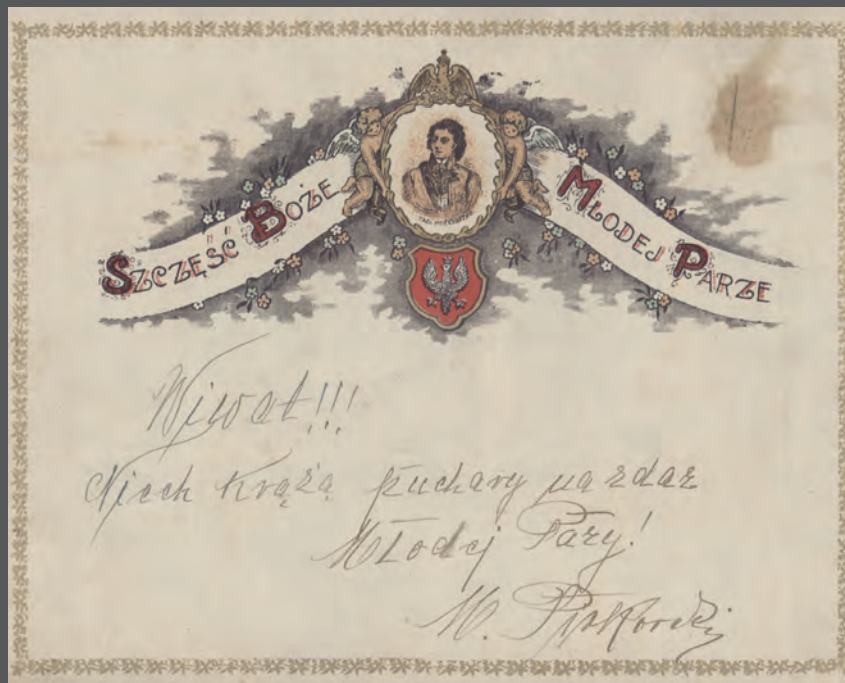 SZCZĘŚĆ BOŻE MŁODEJ PARZE
Wiwat!!!
Niech krążą puchary na zdar
Młodej Pary!
M. Piskorski